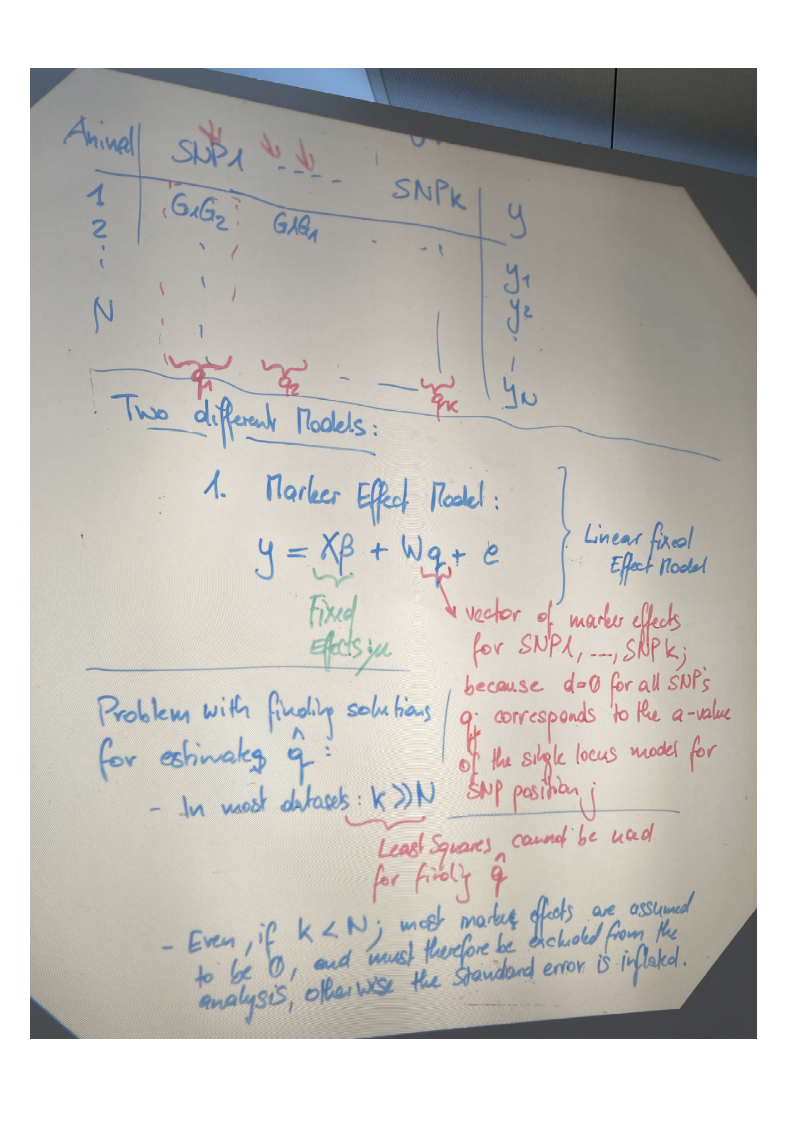 Animal SNP1 ---- SNPk y
1 G1G2 G1G1 . -- y1
2 y2
N yN
q1 q2 - — qk
Two different Models:
1. Marker Effect Model:
y = Xβ + Wq + e
Linear fixed
Effect Model
Fixed
Effects; μ
vector of marker effects
for SNP1, ..., SNPk;
because d=0 for all SNPs
qj corresponds to the a-value
of the single locus model for
SNP position j
Problem with finding solutions
for estimates q̂ :
- In most datasets: k >> N
Least Squares cannot be used
for finding q̂
- Even, if k < N; most marker effects are assumed
to be 0, and must therefore be excluded from the
analysis, otherwise the standard error is inflated.